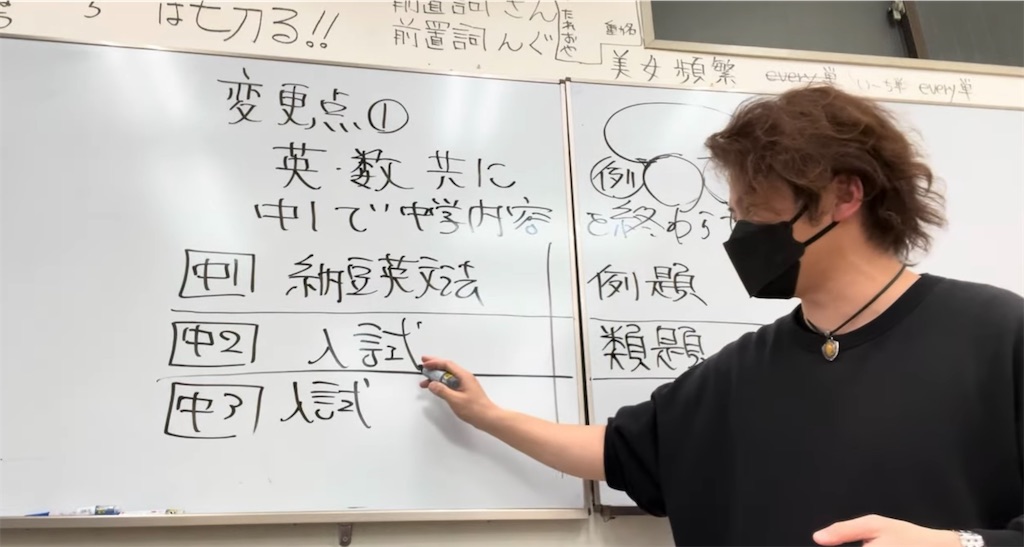 は七刀る!!
前置詞 さん
前置詞 んぐ
たれおや
美女頻繁 every単 いーち単 every単
変更点①
英・数 共に
中1で中学内容
を終わらせ
中1 納豆英文法
中2 入試
中3 入試
例
例題
類題